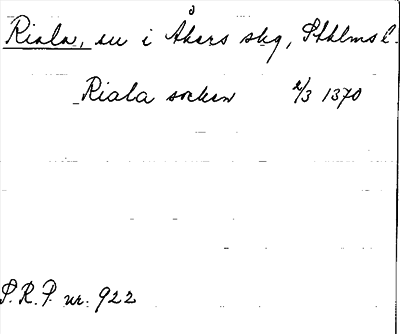 Riala, sn i Åkers skg, Sthlms l.
Riala socken 2/3 1370
S.R.P. nr: 922